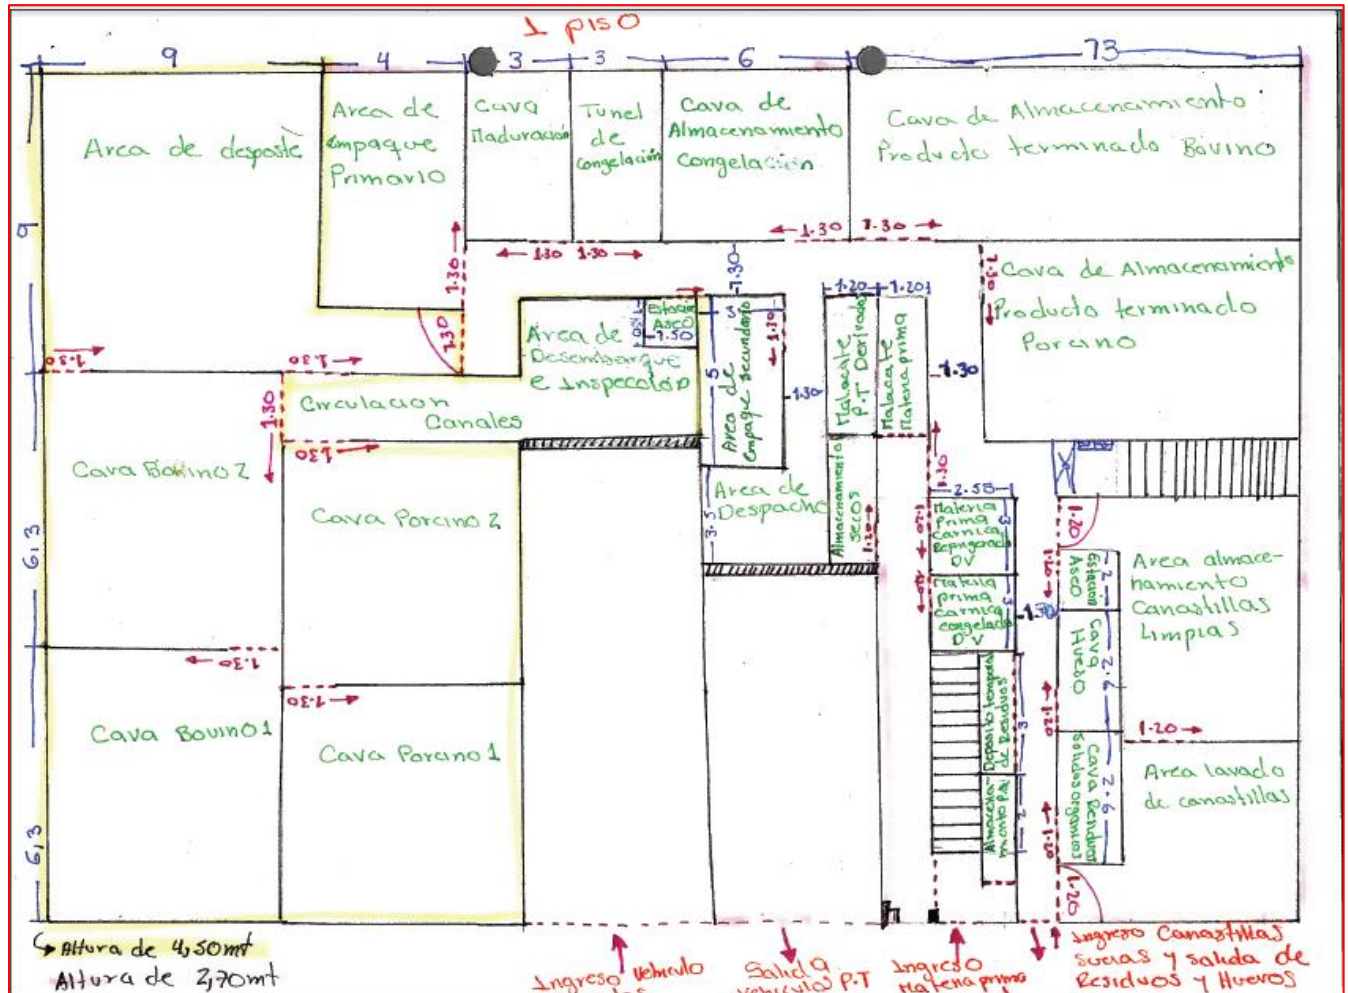 1 PISO
9
4
3
3
6
73
Area de desposte
Area de
Empaque
Primario
Cava
Maduración
Tunel
de
Congelación
Cava de
Almacenamiento
Congelación
Cava de Almacenamiento
Producto terminado Bovino
9
1.30
1.30
1.30
1.30
1.30
1.30
1.30
Cava de Almacenamiento
Producto terminado
Porcino
1.30
1.30
1.30
Estación
Aseo
1.50
1.50
Area de
Desembarque
e Inspección
3
1.30
5
Area de
Empaque secundario
1.30
1.20
1.20
Malacate
P.T Derivados
Malacate
Materia prima
1.30
Circulacion
Canales
1.30
1.30
Cava Bovino 2
Cava Porcino 2
6,3
Area de
Despacho
3.5
Almacenamiento
secos
1.20
1.30
2.50
Materia
Prima
Carnica
Refrigerado
DV
3
1.20
Materia
prima
Carnica
congelado
DV
3
1.20
1.30
1.20
1.20
Estación
Aseo
2
Area almace-
namiento
Canastillas
Limpias
Cava
Hueso
2.6
1.20
1.20
1.30
1.30
Cava Bovino 1
Cava Porcino 1
6,3
Deposito temporal
de Residuos
3
Almacena-
miento P.Q.
2
Cava Residuos
Solidos organicos
2.6
1.20
1.20
Area lavado
de canastillas
Altura de 4,50mt
Altura de 2,70mt
Ingreso Vehiculo
Salida
vehiculos P.T
Ingreso
Materia prima
Ingreso Canastillas
sucias y salida de
Residuos y Huevos